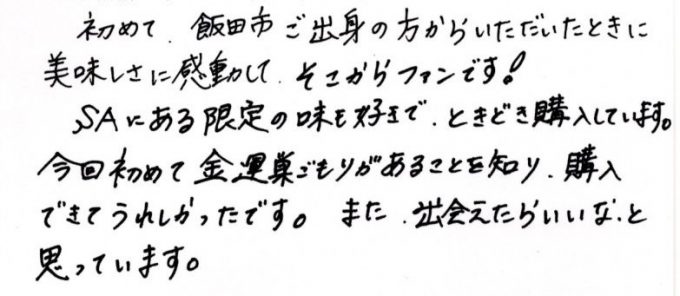 初めて、飯田市ご出身の方からいただいたときに
美味しさに感動して、そこからファンです!
SAにある限定の味も好きで、ときどき購入しています。
今回初めて金運巣ごもりがあることを知り、購入
できてうれしかったです。 また、出会えたらいいな、と
思っています。